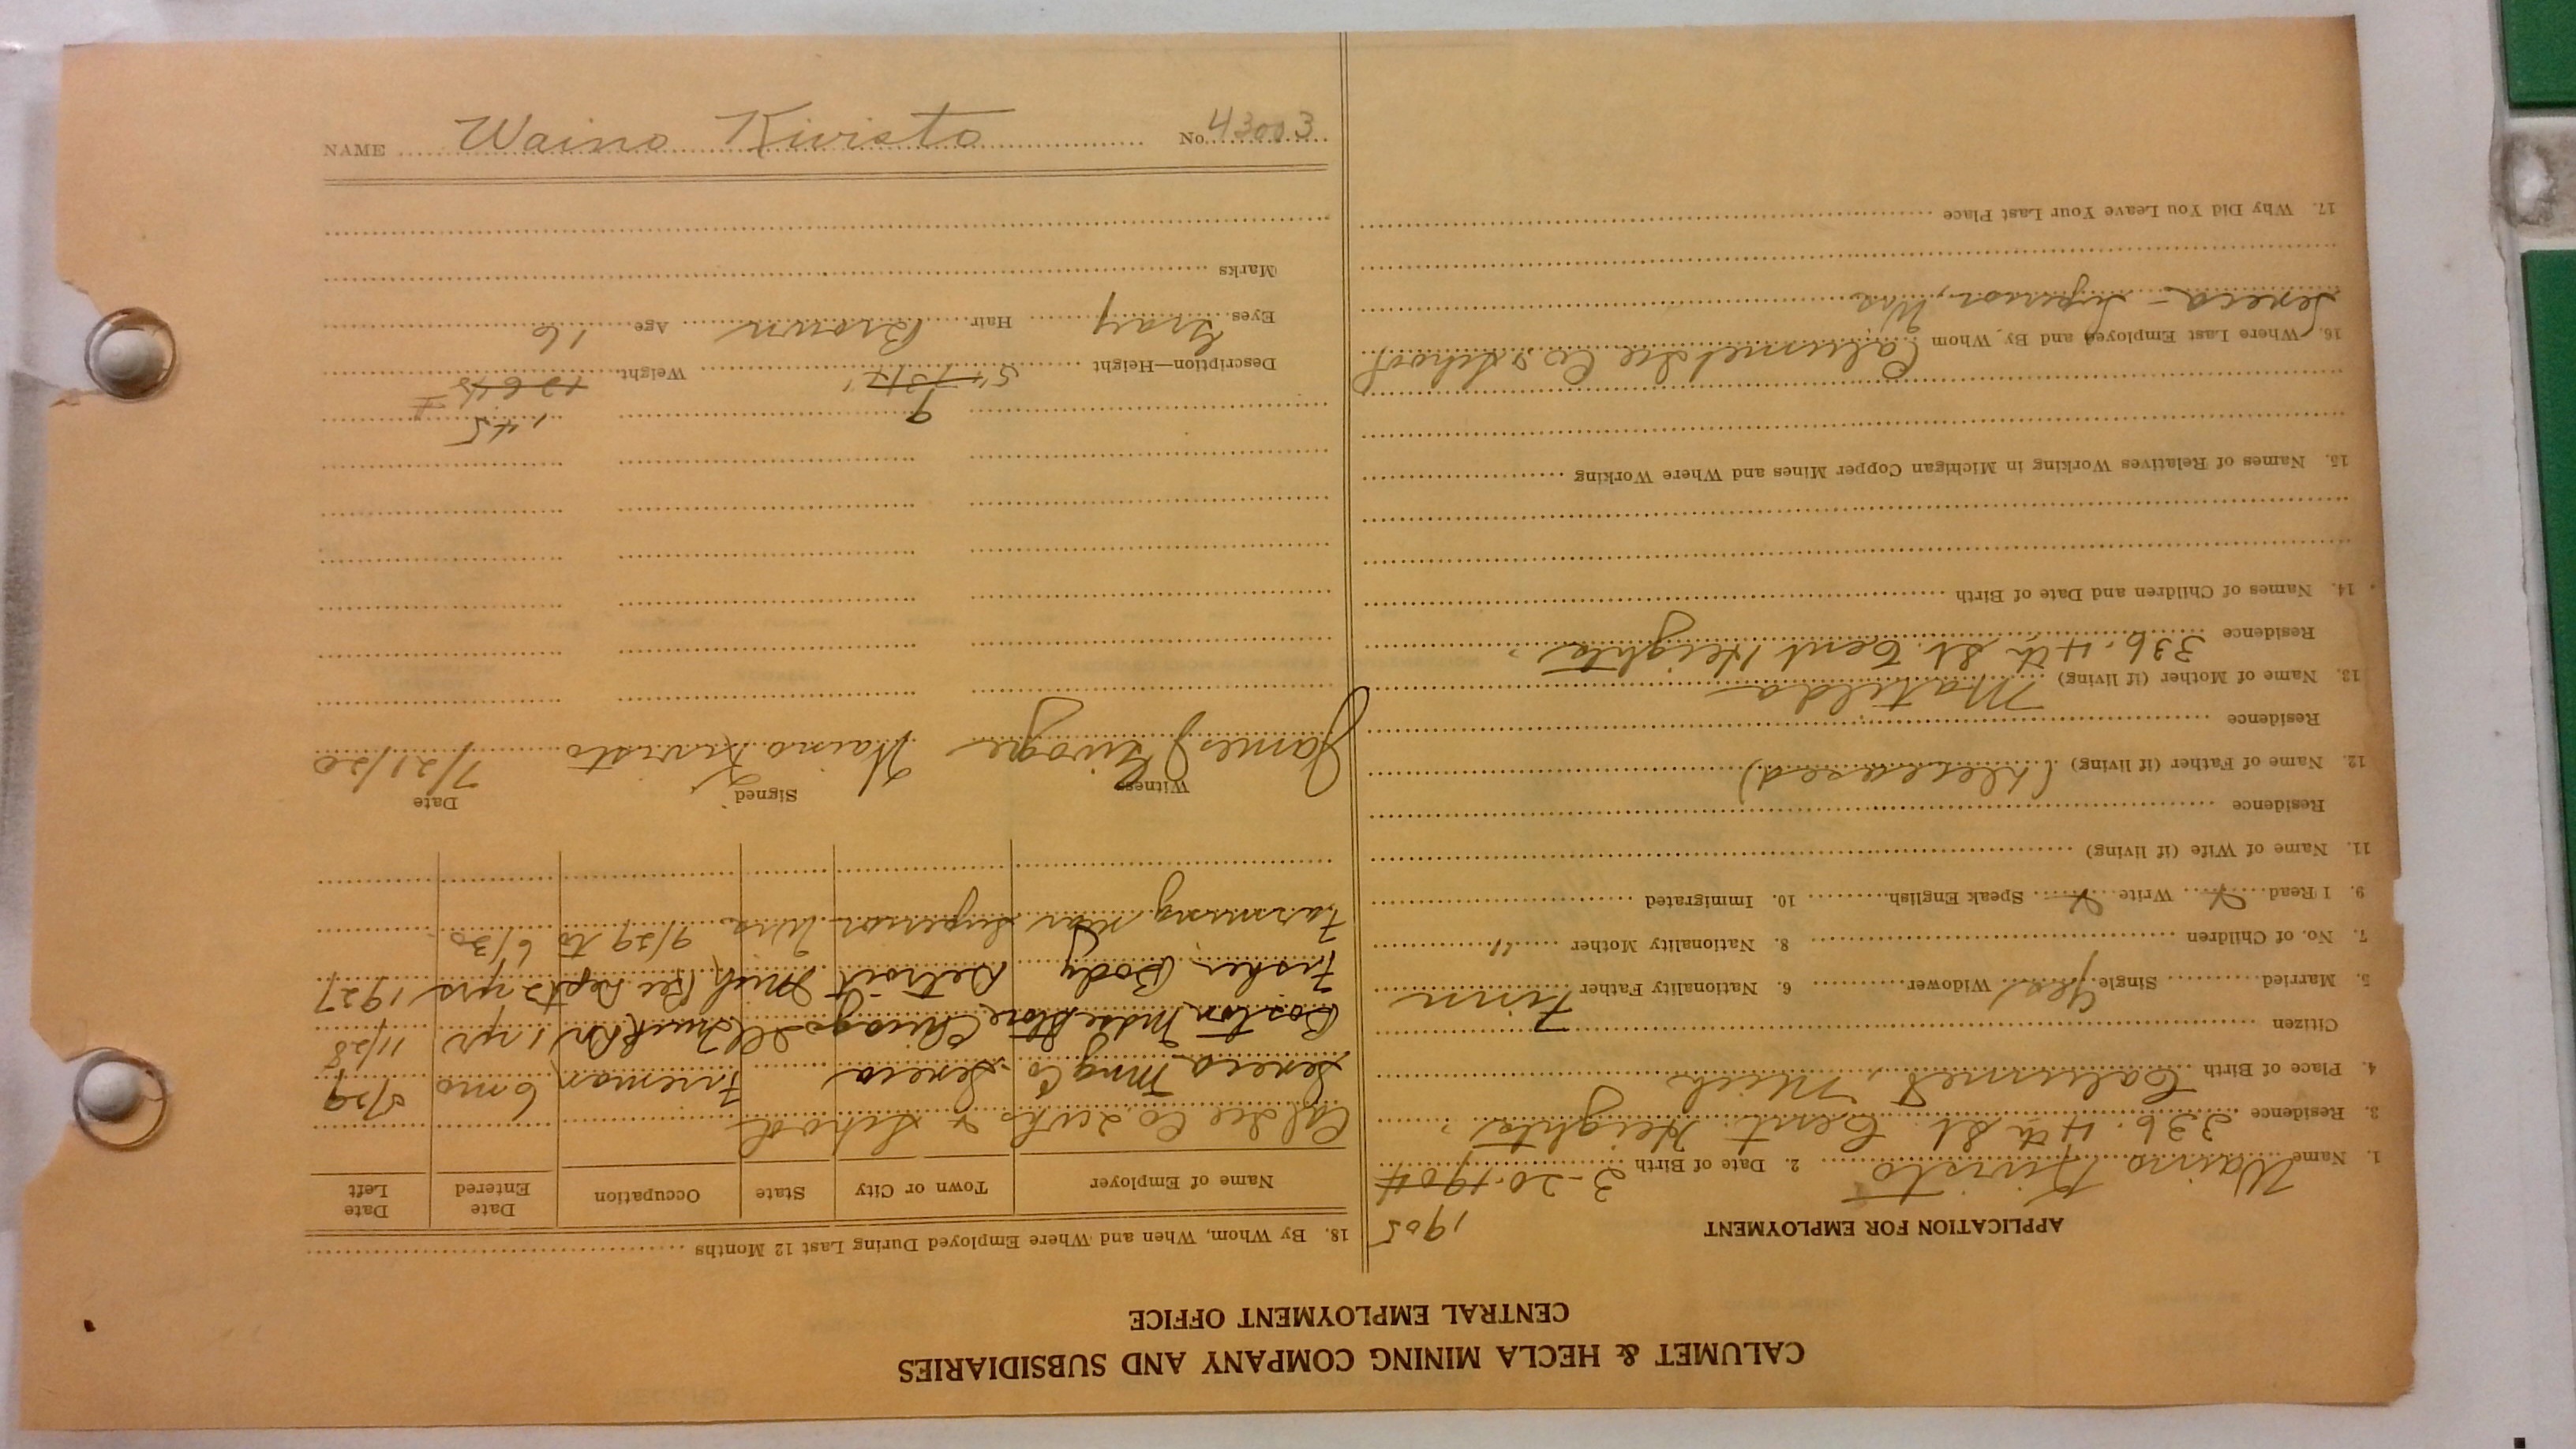 CALUMET & HECLA MINING COMPANY AND SUBSIDIARIES
CENTRAL EMPLOYMENT OFFICE
APPLICATION FOR EMPLOYMENT
1905
1. Name Waino Kivisto 2. Date of Birth 3-20-1904
3. Residence 336. 4th St. Cent Heights.
4. Place of Birth Calumet, Mich
Citizen
5. Married Single Yes Widower 6. Nationality Father Finn
7. No. of Children 8. Nationality Mother "
9. I Read Write Speak English 10. Immigrated
11. Name of Wife (if living)
Residence
12. Name of Father (if living) (deceased)
Residence
13. Name of Mother (if living) Matilda
Residence 336. 4th St. Cent Heights.
14. Names of Children and Date of Birth
15. Names of Relatives Working in Michigan Copper Mines and Where Working
16. Where Last Employed and By Whom Calumet Ice Co & School
Seneca - Superior, Wis
17. Why Did You Leave Your Last Place
18. By Whom, When and Where Employed During Last 12 Months
Name of Employer Town or City State Occupation Date Entered Date Left
Cal Ice Co 2 wks & School
Seneca Mng Co. Seneca Fireman 6 mo 5/29
Boston Store Chicago Ill 1 yr 11/28
Fisher Body Detroit Mich Rec Dept 2 yrs 1927
Farming near Superior Wis. 9/29 to 6/30
Witness Signed Date
James Waino Kivisto 7/21/20
9 145 #
Description—Height 5' Weight
Eyes Gray Hair Brown Age 16
Marks
NAME Waino Kivisto No. 43003